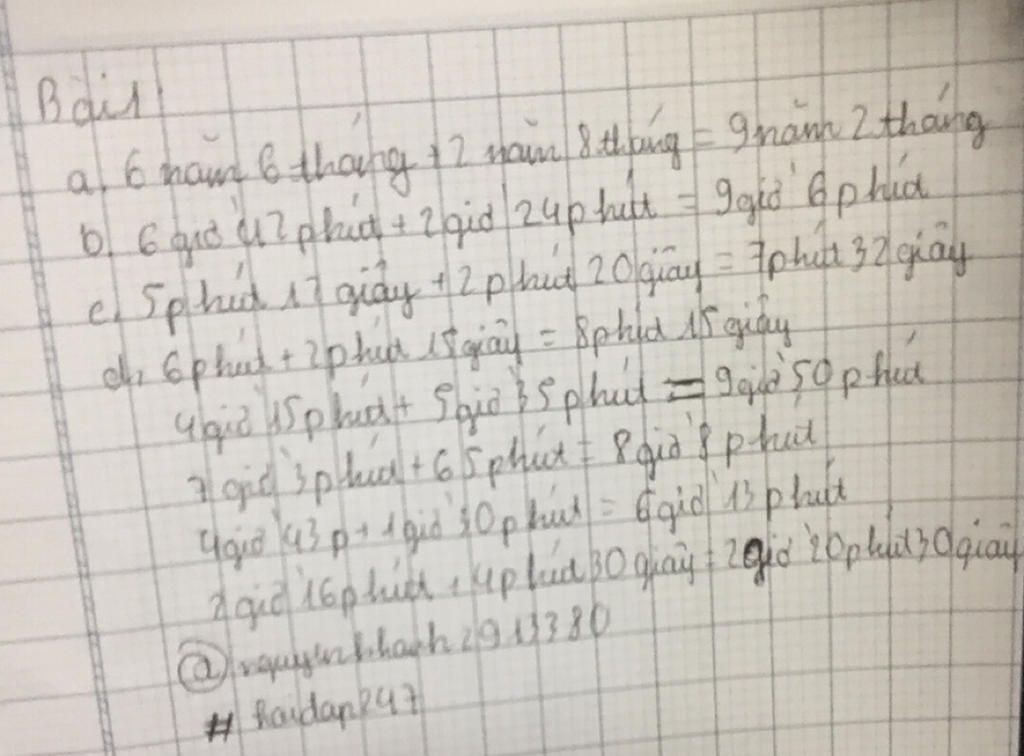 Bài 1
a, 6 năm 6 tháng + 2 năm 8 tháng = 9 năm 2 tháng
b, 6 giờ 42 phút + 2 giờ 24 phút = 9 giờ 6 phút
c, 5 phút 17 giây + 2 phút 20 giây = 7 phút 32 giây
d, 6 phút + 2 phút 15 giây = 8 phút 15 giây
4 giờ 15 phút + 5 giờ 35 phút = 9 giờ 50 phút
7 giờ 3 phút + 65 phút = 8 giờ 8 phút
4 giờ 43 p + 1 giờ 30 phút = 6 giờ 13 phút
2 giờ 16 phút + 4 phút 30 giây = 2 giờ 20 phút 30 giây
@nguyenkhanh2913380
# hoidap247